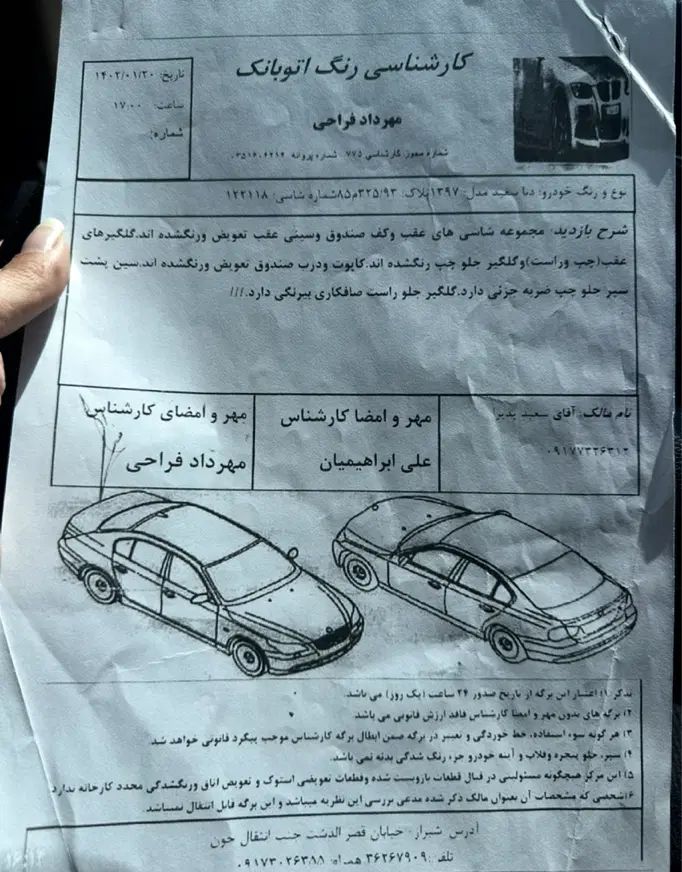 کارشناسی رنگ اتوبانک
تاریخ: ۱۴۰۲/۰۱/۲۰
ساعت: ۱۷:۰۰
شماره:
مهرداد فراحی
شماره مجوز کارشناسی ۷۷۵ شماره پروانه ۰۳۵۱۶۰۶۲۱۴
نوع و رنگ خودرو: دنا سفید مدل: ۱۳۹۷پلاک: ۳۲۵/۹۳م۸۵شماره شاسی: ۱۲۲۱۱۸
شرح بازدید: مجموعه شاسی های عقب وکف صندوق وسینی عقب تعویض ورنگشده اند.گلگیرهای
عقب(چپ وراست)وگلگیر جلو چپ رنگشده اند.کاپوت ودرب صندوق تعویض ورنگشده اند.سین پشت
سپر جلو چپ ضربه جزئی دارد.گلگیر جلو راست صافکاری بیرنگی دارد.///
نام مالک: آقای سعید پدیر
۰۹۱۷۷۳۲۶۳۱۲
مهر و امضا کارشناس
علی ابراهیمیان
مهر و امضای کارشناس
مهرداد فراحی
تذکر ۱) اعتبار این برگه از تاریخ صدور ۲۴ ساعت (یک روز) می باشد.
۲) برگه های بدون مهر و امضا کارشناس فاقد ارزش قانونی می باشد
۳) هر گونه سوء استفاده، خط خوردگی و تغییر در برگه ضمن ابطال برگه کارشناس موجب پیگرد قانونی خواهد شد.
۴) سپر، جلو پنجره وقلاب و آینه خودرو جزء رنگ شدگی بدنه نمی باشد.
۵) این مرکز هیچگونه مسئولیتی در قبال قطعات بازوبست شده وقطعات تعویضی استوک و تعویض اتاق ورنگشدگی مجدد کارخانه ندارد
۶) شخصی که مشخصات آن بعنوان مالک ذکر شده مدعی بررسی این نظریه میباشد و این برگه قابل انتقال نمیباشد.
آدرس شیراز - خیابان قصر الدشت جنب انتقال خون
تلفن: ۳۶۲۶۷۹۰۹ همراه: ۰۹۱۷۳۰۲۶۳۸۸